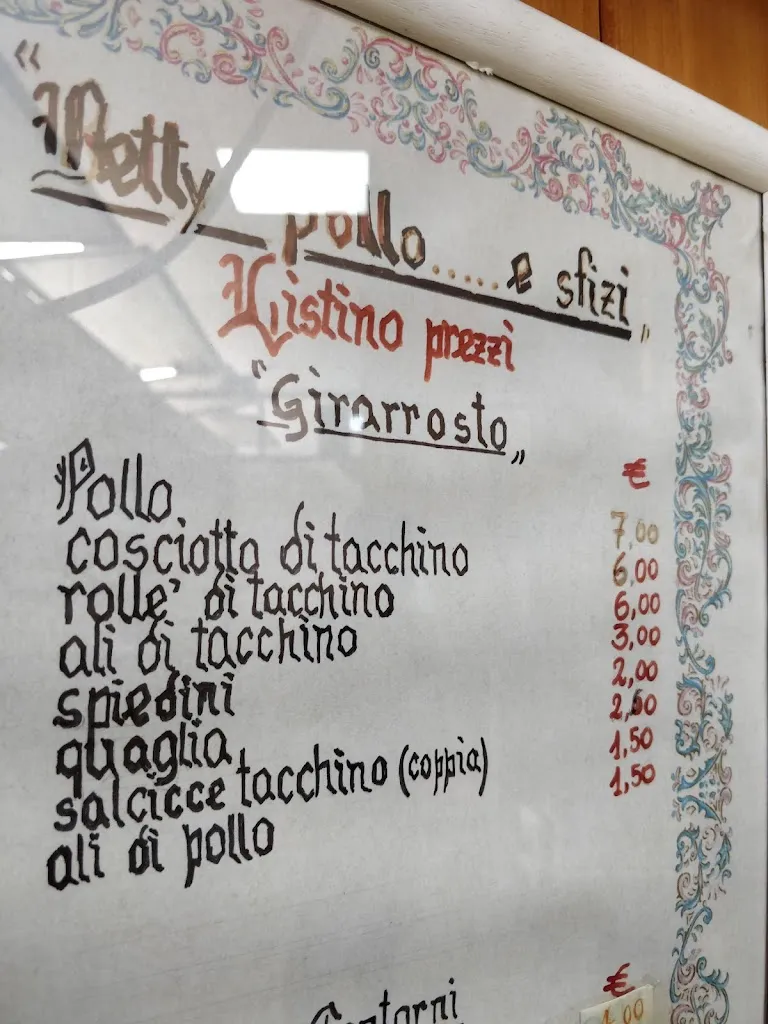 "Betty pollo.....e sfizi"
Listino prezzi
"Girarrosto"
€
Pollo 7,00
cosciotto di tacchino 6,00
rolle' di tacchino 6,00
ali di tacchino 3,00
spiedini 2,00
quaglia 2,60
salcicce tacchino (coppia) 1,50
ali di pollo 1,50
Contorni €
1,00